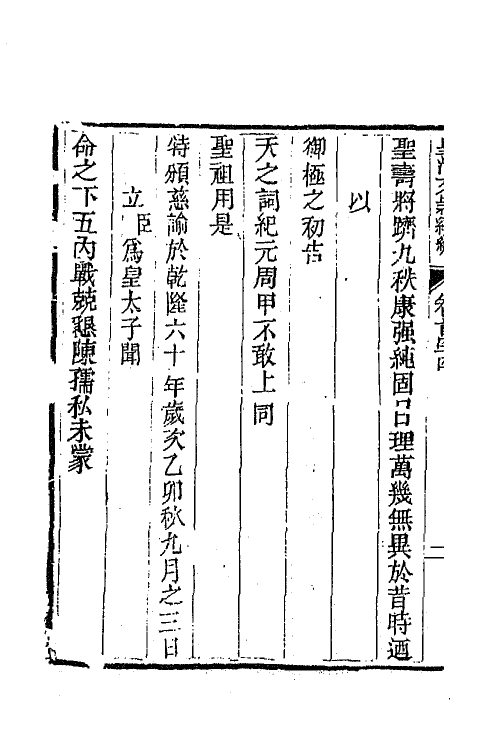 聖壽將躋九秩康强純固日理萬幾無異於昔時迺
以
御極之初告
天之詞紀元周甲不敢上同
聖祖用是
特頒慈諭於乾隆六十年歲次乙卯秋九月之三日
立臣爲皇太子聞
命之下五內戰兢懇陳孺私未蒙